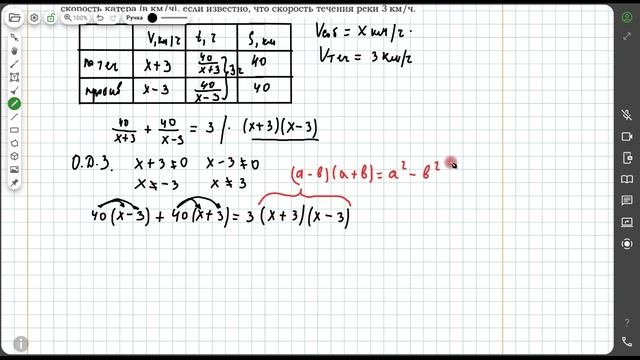 скорость катера (в км/ч), если известно, что скорость течения реки 3 км/ч.
100%
Ручка
V, км/ч t, ч S, км
по теч x+3 40/(x+3) 40
против x-3 40/(x-3) 40
3ч
Vсоб = x км/ч.
Vтеч = 3 км/ч
40/(x+3) + 40/(x-3) = 3 /· (x+3)(x-3)
О.Д.З. x+3≠0 x-3≠0
x≠-3 x≠3
(a-в)(a+в)=a²-в²
40(x-3)+40(x+3)=3(x+3)(x-3)